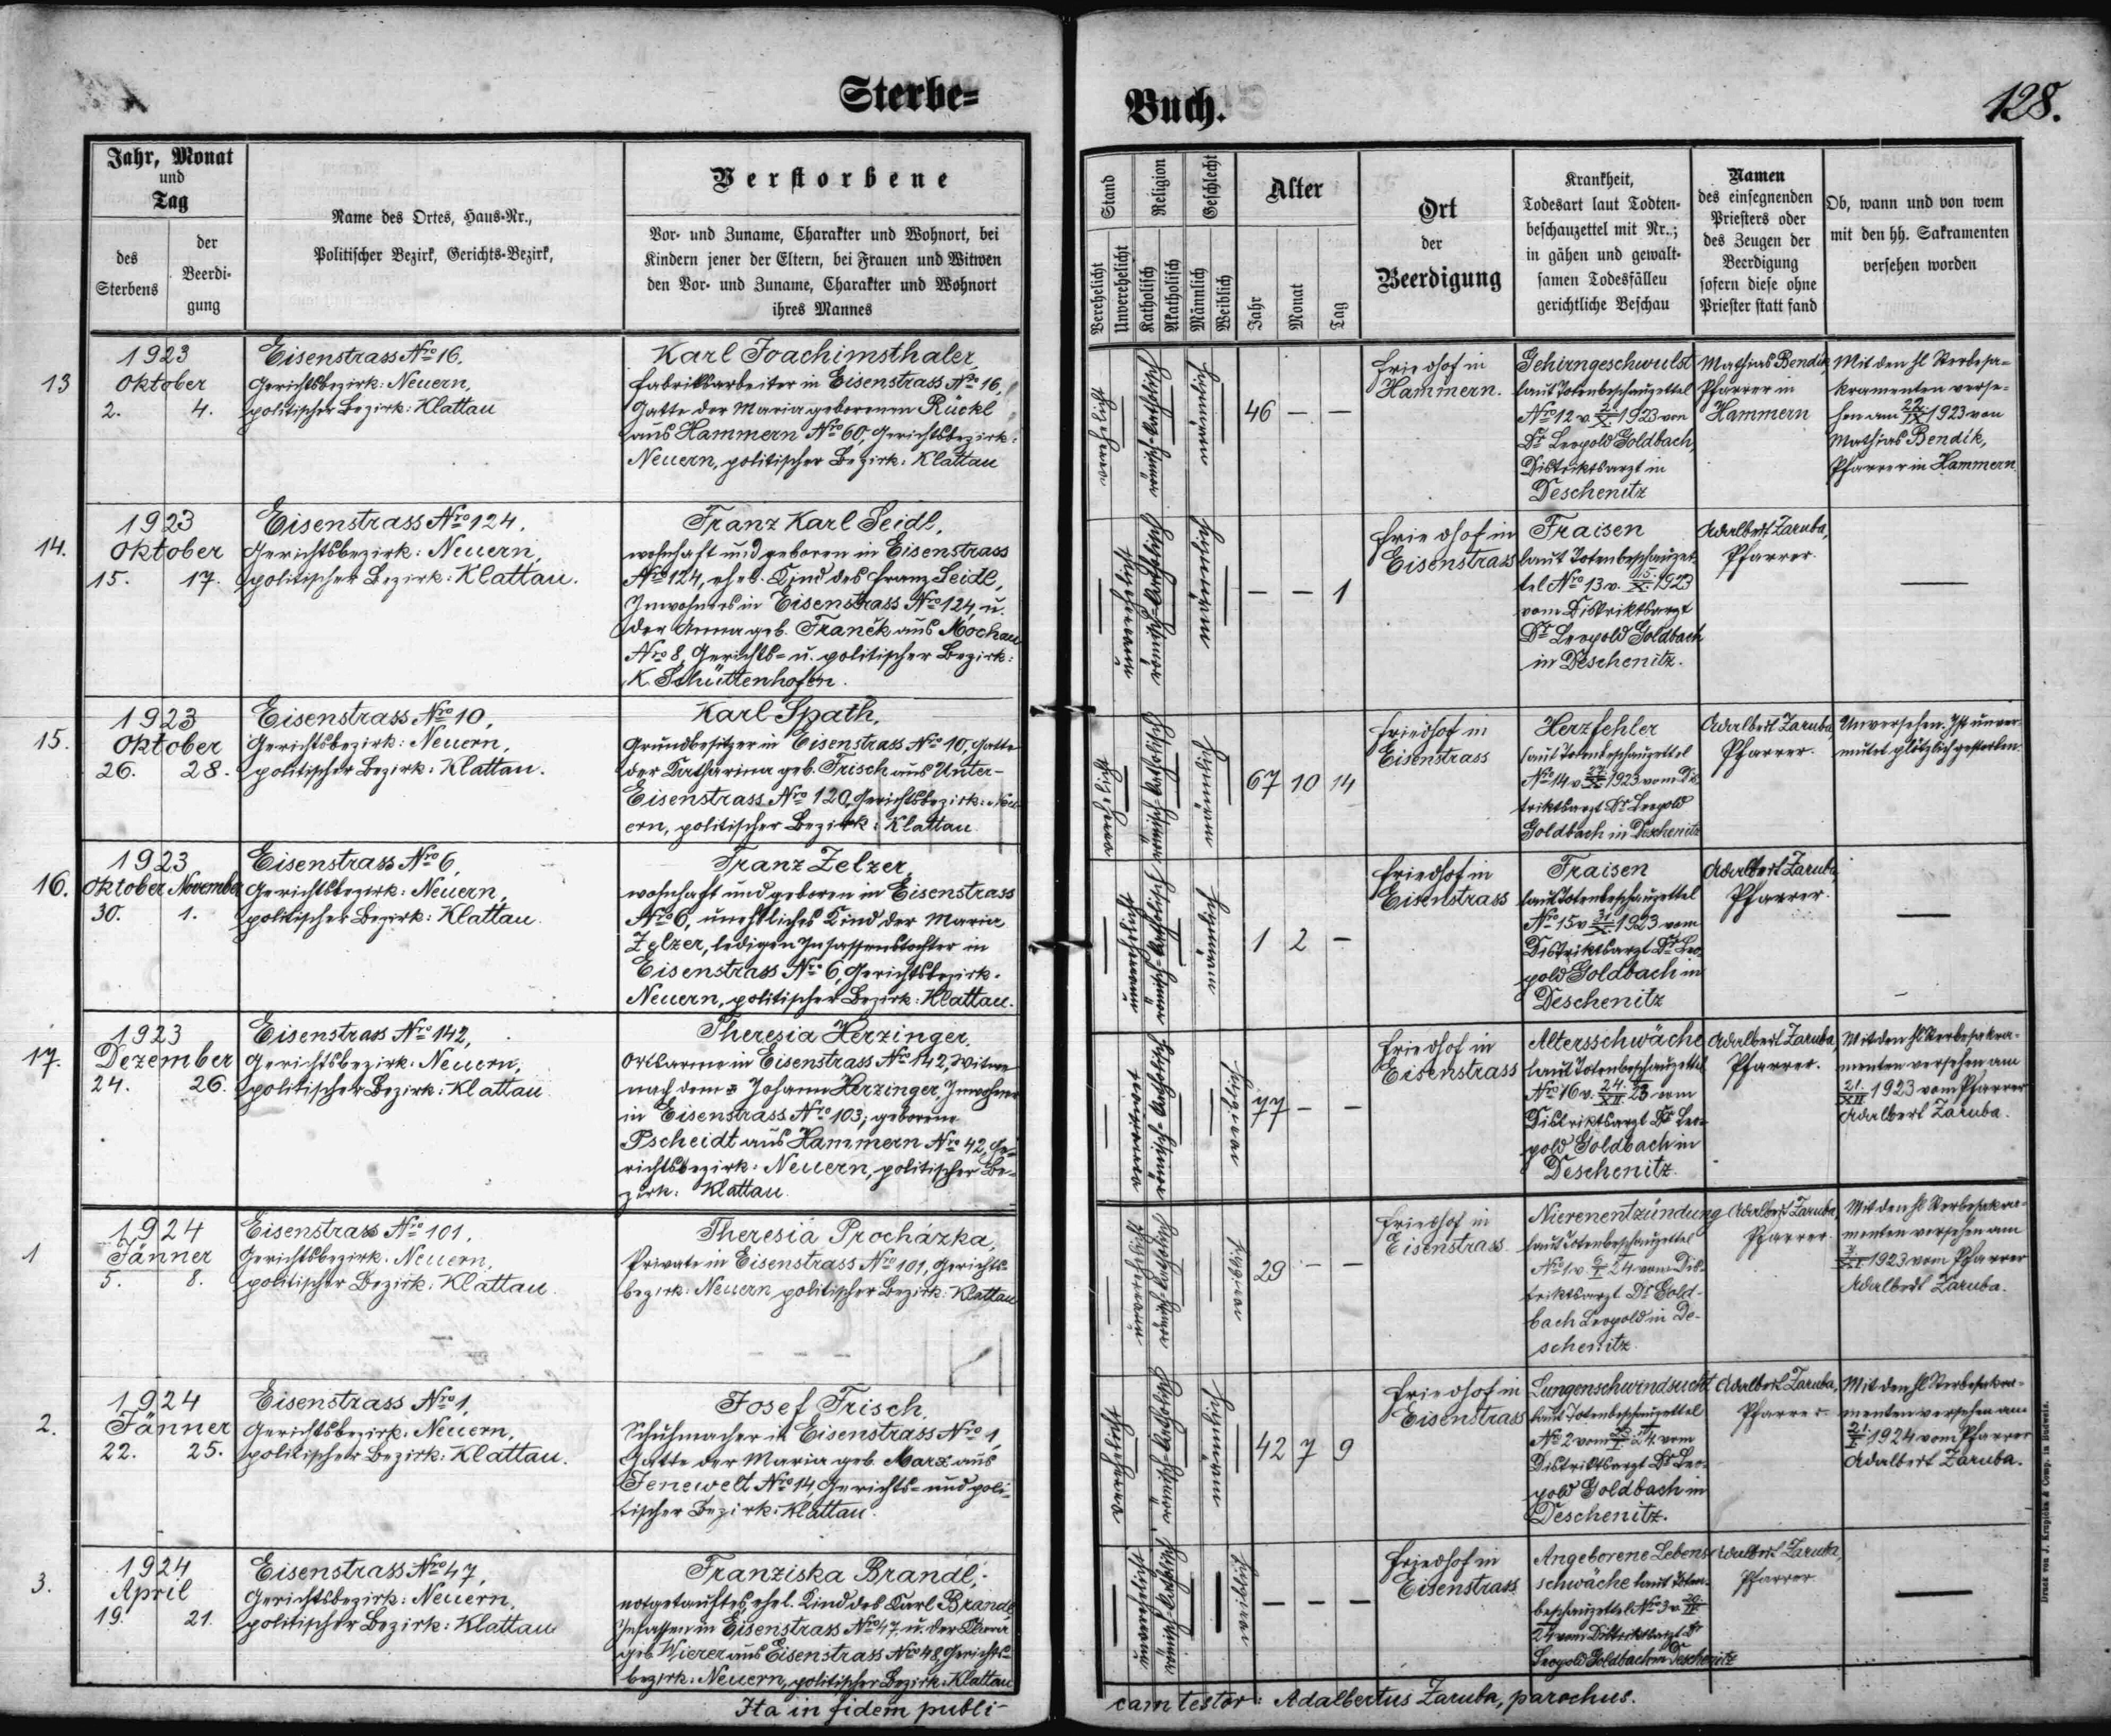 Sterbe=
Buch.
128.
Jahr, Monat
und
Tag
des
Sterbens
der
Beerdi-
gung
Name des Ortes, Haus-Nr.,
Politischer Bezirk, Gerichts-Bezirk,
Verstorbene
Vor- und Zuname, Charakter und Wohnort, bei
Kindern jener der Eltern, bei Frauen und Witwen
den Vor- und Zuname, Charakter und Wohnort
ihres Mannes
Stand
Verehelicht
Unverehelicht
Religion
Katholisch
Akatholisch
Geschlecht
Männlich
Weiblich
Alter
Jahr
Monat
Tag
Ort
der
Beerdigung
Krankheit,
Todesart laut Todten-
beschauzettel mit Nr.;
in gähen und gewalt-
samen Todesfällen
gerichtliche Beschau
Namen
des einsegnenden
Priesters oder
des Zeugen der
Beerdigung
sofern diese ohne
Priester statt fand
Ob, wann und von wem
mit den hh. Sakramenten
versehen worden
13
1923
Oktober
2. 4.
Eisenstrass Nro 16.
Gerichtsbezirk: Neuern,
politischer Bezirk: Klattau
Karl Joachimsthaler,
Fabriksarbeiter in Eisenstrass Nro 16,
Gatte der Maria geborenen Rückl
aus Hammern Nro 60, Gerichtsbezirk:
Neuern, politischer Bezirk: Klattau
verehelicht
römisch-katholisch
männlich
46 — —
Friedhof in
Hammern.
Gehirngeschwulst
laut Totenbeschauzettel
Nro 12 v. 2./X. 1923 von
Dr Leopold Goldbach,
Distriktsarzt in
Deschenitz
Mathias Bendik
Pfarrer in
Hammern
Mit den hl Sterbesa-
kramenten verse-
hen am 22./IX. 1923 von
Mathias Bendík,
Pfarrer in Hammern.
14.
1923
Oktober
15. 17.
Eisenstrass Nro 124.
Gerichtsbezirk: Neuern,
politischer Bezirk: Klattau.
Franz Karl Seidl,
wohnhaft und geboren in Eisenstrass
Nro 124, ehel. Kind des Franz Seidl,
Inwohners in Eisenstrass Nro 124, u.
der Anna geb. Franěk aus Mochau
Nro 8, Gerichts- u. politischer Bezirk:
K. Schüttenhofen.
unverehelicht
römisch-katholisch
männlich
— — 1
Friedhof in
Eisenstrass
Fraisen
laut Totenbeschauzet-
tel Nro 13 v. 15./X. 1923
vom Distriktsarzt
Dr Leopold Goldbach
in Deschenitz.
Adalbert Zaruba,
Pfarrer.
—
15.
1923
Oktober
26. 28.
Eisenstrass Nro 10,
Gerichtsbezirk: Neuern,
politischer Bezirk: Klattau.
Karl Spath,
Grundbesitzer in Eisenstrass Nro 10, Gatte
der Katharina geb. Frisch aus Unter-
Eisenstrass Nro 120, Gerichtsbezirk: Neu-
ern, politischer Bezirk: Klattau
verehelicht
römisch-katholisch
männlich
67 10 14
Friedhof in
Eisenstrass
Herzfehler
laut Totenbeschauzettel
Nro 14 v. 27./X. 1923 vom Dis-
triktsarzt Dr Leopold
Goldbach in Deschenitz
Adalbert Zaruba,
Pfarrer.
Unversehen. Ist unver-
mutet plötzlich gestorben.
16.
1923
Oktober November
30. 1.
Eisenstrass Nro 6,
Gerichtsbezirk: Neuern,
politischer Bezirk: Klattau
Franz Zelzer,
wohnhaft und geboren in Eisenstrass
Nro 6, uneheliches Kind der Maria
Zelzer, ledigen Insassenstochter in
Eisenstrass Nro 6, Gerichtsbezirk.
Neuern, politischer Bezirk: Klattau.
unverehelicht
römisch-katholisch
männlich
1 2 —
Friedhof in
Eisenstrass
Fraisen
laut Totenbeschauzettel
Nro 15 v. 31./X. 1923 vom
Distriktsarzt Dr Leo-
pold Goldbach in
Deschenitz
Adalbert Zaruba,
Pfarrer.
—
17.
1923
Dezember
24. 26.
Eisenstrass Nro 142,
Gerichtsbezirk: Neuern,
politischer Bezirk: Klattau
Theresia Herzinger,
Ortsarme in Eisenstrass Nro 142, Witwe
nach dem Johann Herzinger, Inwohner
in Eisenstrass Nro 103, geborene
Pscheidt aus Hammern Nro 42, Ge-
richtsbezirk: Neuern, politischer Be-
zirk: Klattau.
verwitwet
römisch-katholisch
weiblich
77 — —
Friedhof in
Eisenstrass
Altersschwäche
laut Totenbeschauzettel
Nro 16 v. 24./XII. 23 vom
Distriktsarzt Dr Leo-
pold Goldbach in
Deschenitz.
Adalbert Zaruba,
Pfarrer.
Mit den hl Sterbesakra-
menten versehen am
21./XII. 1923 vom Pfarrer
Adalbert Zaruba.
1
1924
Jänner
5. 8.
Eisenstrass Nro 101.
Gerichtsbezirk. Neuern,
politischer Bezirk: Klattau.
Theresia Procházka,
Private in Eisenstrass Nro 101, Gerichts-
bezirk: Neuern politischer Bezirk: Klattau
unverehelicht
römisch-katholisch
weiblich
29 — —
Friedhof in
Eisenstrass
Nierenentzündung
laut Totenbeschauzettel
Nro 1 v. 6./I. 24 vom Dis-
triktsarzt Dr Gold-
bach Leopold in De-
schenitz.
Adalbert Zaruba,
Pfarrer.
Mit den hl Sterbesakra-
menten versehen am
1923 vom Pfarrer
Adalbert Zaruba.
2.
1924
Jänner
22. 25.
Eisenstrass Nro 1,
Gerichtsbezirk: Neuern,
politischer Bezirk: Klattau.
Josef Frisch,
Schuhmacher in Eisenstrass Nro 1,
Gatte der Maria geb. Marx aus
Jenewelt Nro 14, Gerichts- und poli-
tischer Bezirk: Klattau.
verehelicht
römisch-katholisch
männlich
42 7 9
Friedhof in
Eisenstrass
Lungenschwindsucht
laut Totenbeschauzettel
Nro 2 vom 24. vom
Distriktsarzt Dr Leo-
pold Goldbach in
Deschenitz.
Adalbert Zaruba,
Pfarrer
Mit den hl Sterbesakra-
menten versehen am
21./I. 1924 vom Pfarrer
Adalbert Zaruba.
3.
1924
April
19. 21.
Eisenstrass Nro 47,
Gerichtsbezirk: Neuern,
politischer Bezirk: Klattau
Franziska Brandl,
notgetauftes ehel. Kind des Karl Brandl,
Insassen in Eisenstrass Nro 47, u. der
geb. Wierer aus Eisenstrass Nro 48, Gerichts-
bezirk: Neuern, politischer Bezirk: Klattau
unverehelicht
römisch-katholisch
weiblich
— — —
Friedhof in
Eisenstrass
Angeborene Lebens-
schwäche laut Toten-
beschauzettel Nro 3 v. 20./IV.
24 vom Distriktsarzt Dr
Leopold Goldbach in Deschenitz
Adalbert Zaruba,
Pfarrer
—
Ita in fidem publi-
cam testor: Adalbertus Zaruba, parochus.
Druck von J. Krupička & Comp. in Budweis.